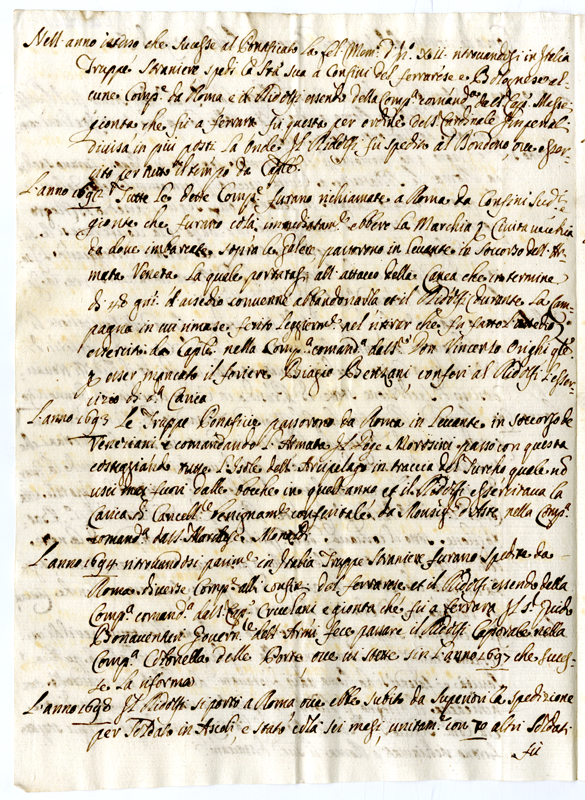 Nell'anno istesso che successe al Ponteficato la fel. Mem. d'In. XII. ritrovandosi in Italia
Truppe straniere spedì la Stà Sua a Confini del ferrarese e Bolognese al-
cune Comp.e da Roma et il Ridolfi essendo della Comp.a comand.a dal Cap.
gionta che fù a ferrara fù questa per ordine dell' Cardinale Imperiali
divisa in più posti là onde Il Ridolfi fù spedito al Bondeno ove eser-
citò per tutto il tempo da
L'anno 1692 Tutte le dette Comp.e furano richiamate a Roma da Confini sud.i e
gionte che furano colà immediatam.e ebbero la Marchia p Civita vecchia
da dove imbarcate sopra le Galere passorono in Levante in soccorso dell'Ar-
mata Veneta la quale portatasi all'attacco della Canea che in termine
di g.ni d'assedio convenne abbandonarla et il Ridolfi durante la Cam-
pagna in cui rimase ferito leggierm.e nel ritirar che fù fatto
esercitò da nella Comp.a comand.a dall' Don Vincenzo Orighi
p esser mancato il foriere Biagio Benzani, conferì al Ridolfi l'eser-
cizio di d.a Carica
L'anno 1693 Le Truppe Ponteficie passorono da Roma in Levante in soccorso de
Veneziani e comandando l'Armata Il Doge Morosini passò con questa
costeggiando tutte l'Isole dell'Arcipelago in traccia del Turcho quale nō
uscì mai fuori dalle bocche in quell'anno et il Ridolfi essercitava la
Carica di Cancell.e conferitale da Monsig.r d'Aste nella Comp.a
comand.a dall' Marchese
L'anno 1694 ritrovandosi parim.e in Italia Truppe straniere furano spedite da
Roma diverse Comp.e alli confini del ferrarese et il Ridolfi essendo della
Comp.a comand.a dall' Cap. Crivelani e gionta che fù a ferrara Il S.r Guido
Bonaventura Govern.le dell'Armi fece passare il Ridolfi Caporale nella
Comp.a Colonella delle Porte, ove vi stette sin l'anno 1697 che succes-
se la riforma
L'anno 1698 Il Ridolfi si portò a Roma ove ebbe subito da superiori la spedizione
per Soldato in Ascoli e stato colà sei mesi, unitam.e con 70 altri Soldati
fù